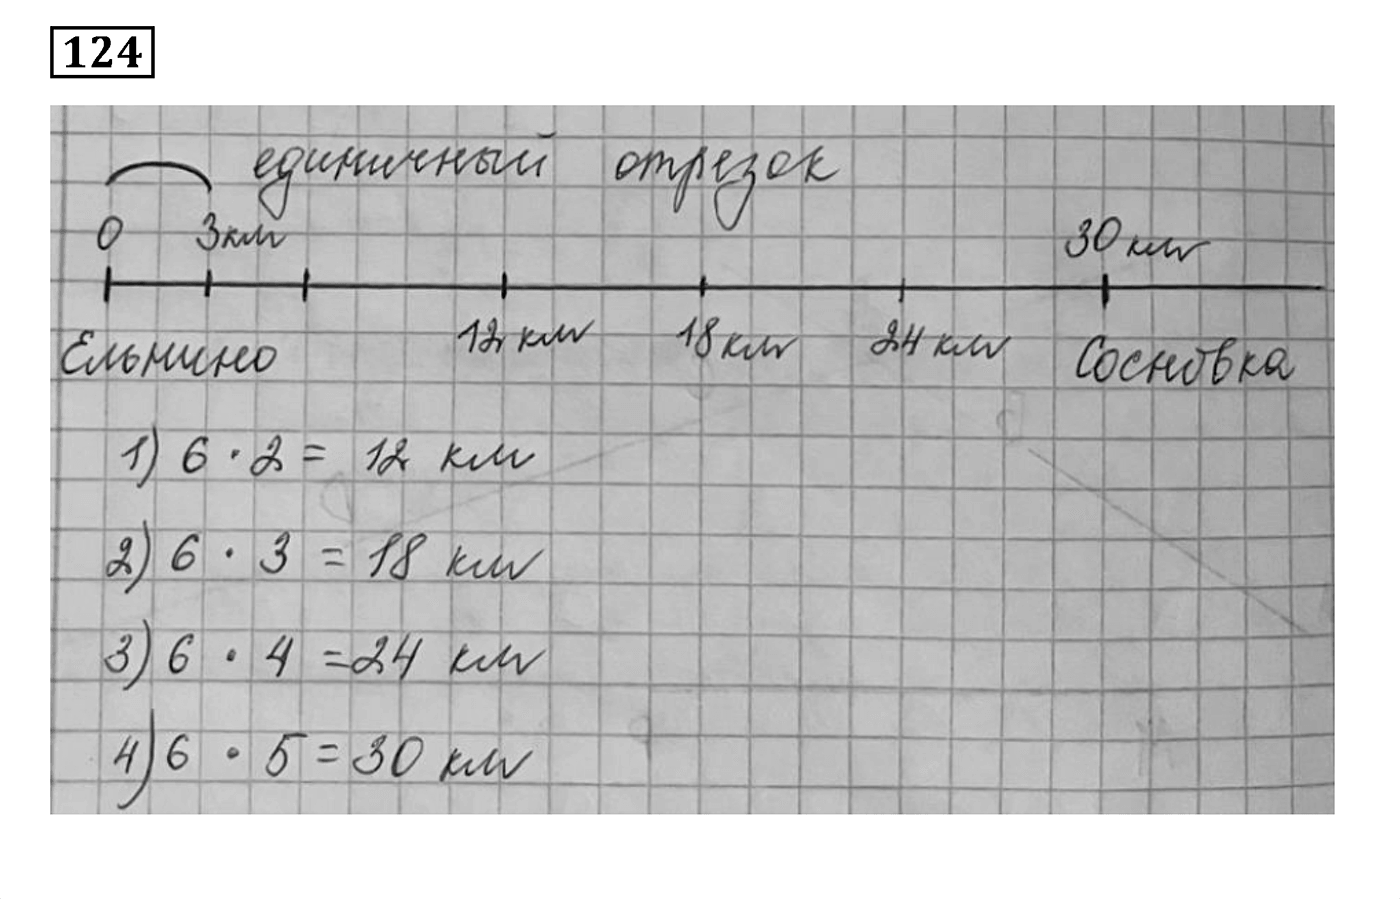 124
единичный отрезок
0 3км 30 км
12 км 18 км 24 км
Ельнино Сосновка
1) 6 · 2 = 12 км
2) 6 · 3 = 18 км
3) 6 · 4 = 24 км
4) 6 · 5 = 30 км